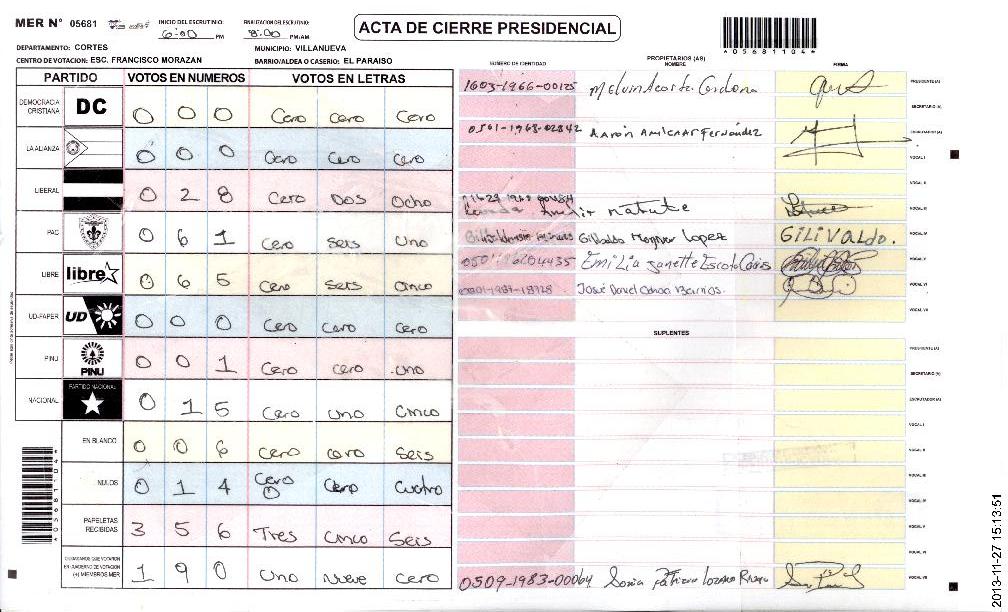 MER N° 05681
INICIO DEL ESCRUTINIO: 6:00 PM
FINALIZACION DEL ESCRUTINIO: 8:00 PM/AM
ACTA DE CIERRE PRESIDENCIAL
*05681104*
DEPARTAMENTO: CORTES
MUNICIPIO: VILLANUEVA
CENTRO DE VOTACION: ESC. FRANCISCO MORAZAN
BARRIO/ALDEA O CASERIO: EL PARAISO
PARTIDO VOTOS EN NUMEROS VOTOS EN LETRAS
DEMOCRACIA CRISTIANA DC 0 0 0 Cero Cero Cero
LA ALIANZA 0 0 0 Cero Cero Cero
LIBERAL 0 2 8 Cero Dos Ocho
PAC 0 6 1 Cero Seis Uno
LIBRE libre 0 6 5 Cero Seis Cinco
UD-FAPER UD 0 0 0 Cero Cero Cero
PINU PINU 0 0 1 Cero Cero Uno
NACIONAL PARTIDO NACIONAL 0 1 5 Cero Uno Cinco
EN BLANCO 0 0 6 Cero Cero Seis
NULOS 0 1 4 Cero 0 Cero Cuatro
PAPELETAS RECIBIDAS 3 5 6 Tres Cinco Seis
CIUDADANOS QUE VOTARON EN CUADERNO DE VOTACION (+) MIEMBROS MER 1 9 0 Uno Nueve Cero
NUMERO DE IDENTIDAD PROPIETARIOS (AS) NOMBRE FIRMA
1603-1966-00125 Melvin Acosta Cardona PRESIDENTE(A)
SECRETARIO(A)
0501-1968-02842 Aarón Amilcar Fernández ESCRUTADOR(A)
VOCAL I
VOCAL II
natute VOCAL III
Gilibaldo Lopez GILIVALDO. VOCAL IV
Emilia Janette Escoto VOCAL V
José Daniel Barrios VOCAL VI
VOCAL VII
SUPLENTES
PRESIDENTE(A)
SECRETARIO(A)
ESCRUTADOR(A)
VOCAL I
VOCAL II
VOCAL III
VOCAL IV
VOCAL V
VOCAL VI
0509-1983-00064 Sonia Patricia Lozano VOCAL VII
2013-11-27 15:13:51